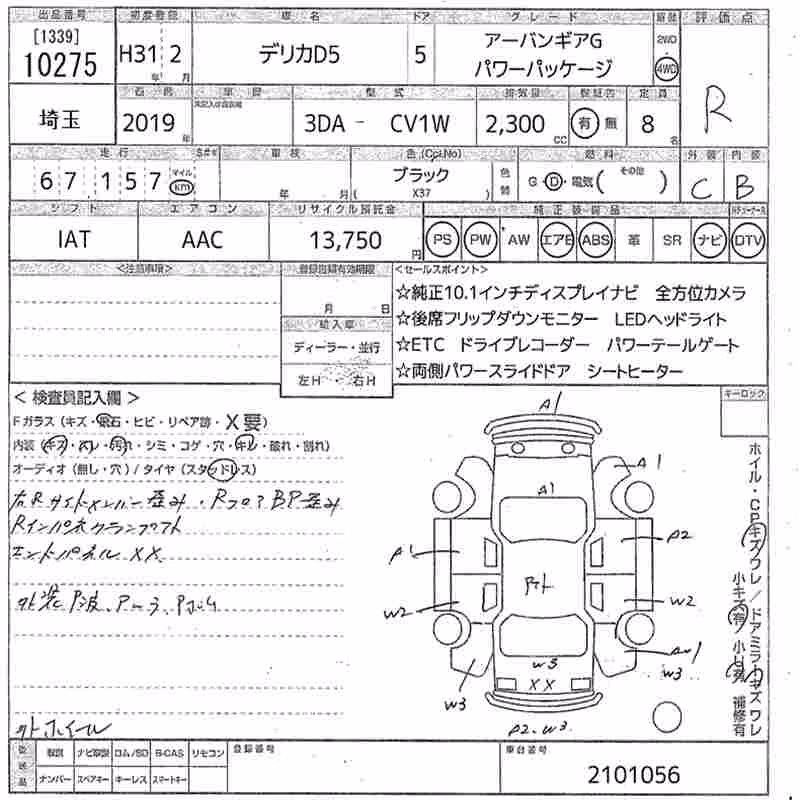 出品番号 初度登録 車名 ドア グレード 駆動 評価点
[1339]
10275 H31 年 2 月 デリカD5 5 アーバンギアG パワーパッケージ 2WD ・ 4WD R
埼玉 2019 年 型式 3DA - CV1W 排気量 2,300 cc 有 無 定員 8 名
走行 車検 色(Col.No) 燃料 外装 内装
67 157 マイル km 年 月 ブラック ( X37 ) 色替 G・D・電気 ( その他 ) C B
シフト エアコン リサイクル預託金 純正装備品
IAT AAC 13,750 円 PS PW AW エアB ABS 革 SR ナビ DTV
<注意事項> 登録書類有効期限 <セールスポイント>
月 日 ☆純正10.1インチディスプレイナビ 全方位カメラ
輸入車 ☆後席フリップダウンモニター LEDヘッドライト
ディーラー・並行 ☆ETC ドライブレコーダー パワーテールゲート
左H ・ 右H ☆両側パワースライドドア シートヒーター
< 検査員記入欄 > キーロック
Fガラス (キズ・飛石・ヒビ・リペア跡・X要)
内装 (キズ・スレ・汚れ・シミ・コゲ・穴・キレ・破れ・割れ)
オーディオ (無し・穴) / タイヤ (スタッドレス)
右Rサイドメンバー歪み・RフロアBP歪み
Rインパネクランプアト
エンドパネル XX
外装 P波、
外ホイール
A1
A1
A1
A1 A2
Rt
W2 W2
W3
W3 XX W3
A2. W3
ホイル・CPキズワレ/ドアミラーキズワレ
小キズ有/小凹有 補修有
後送品 取説 ナビ取説 ロム/SD B-CAS リモコン 登録番号 車台番号
ナンバー スペアキー キーレス スマートキー 2101056